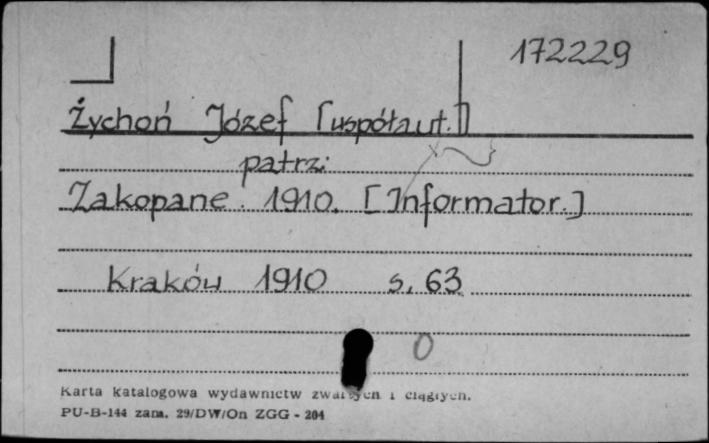 172229
Żychoń Józef [współaut.]
patrz:
Zakopane. 1910. [Informator.]
Kraków 1910 s. 63
0
Karta katalogowa wydawnictw zwartych i ciągłych.
PU-B-144 zam. 29/DW/On ZGG - 204